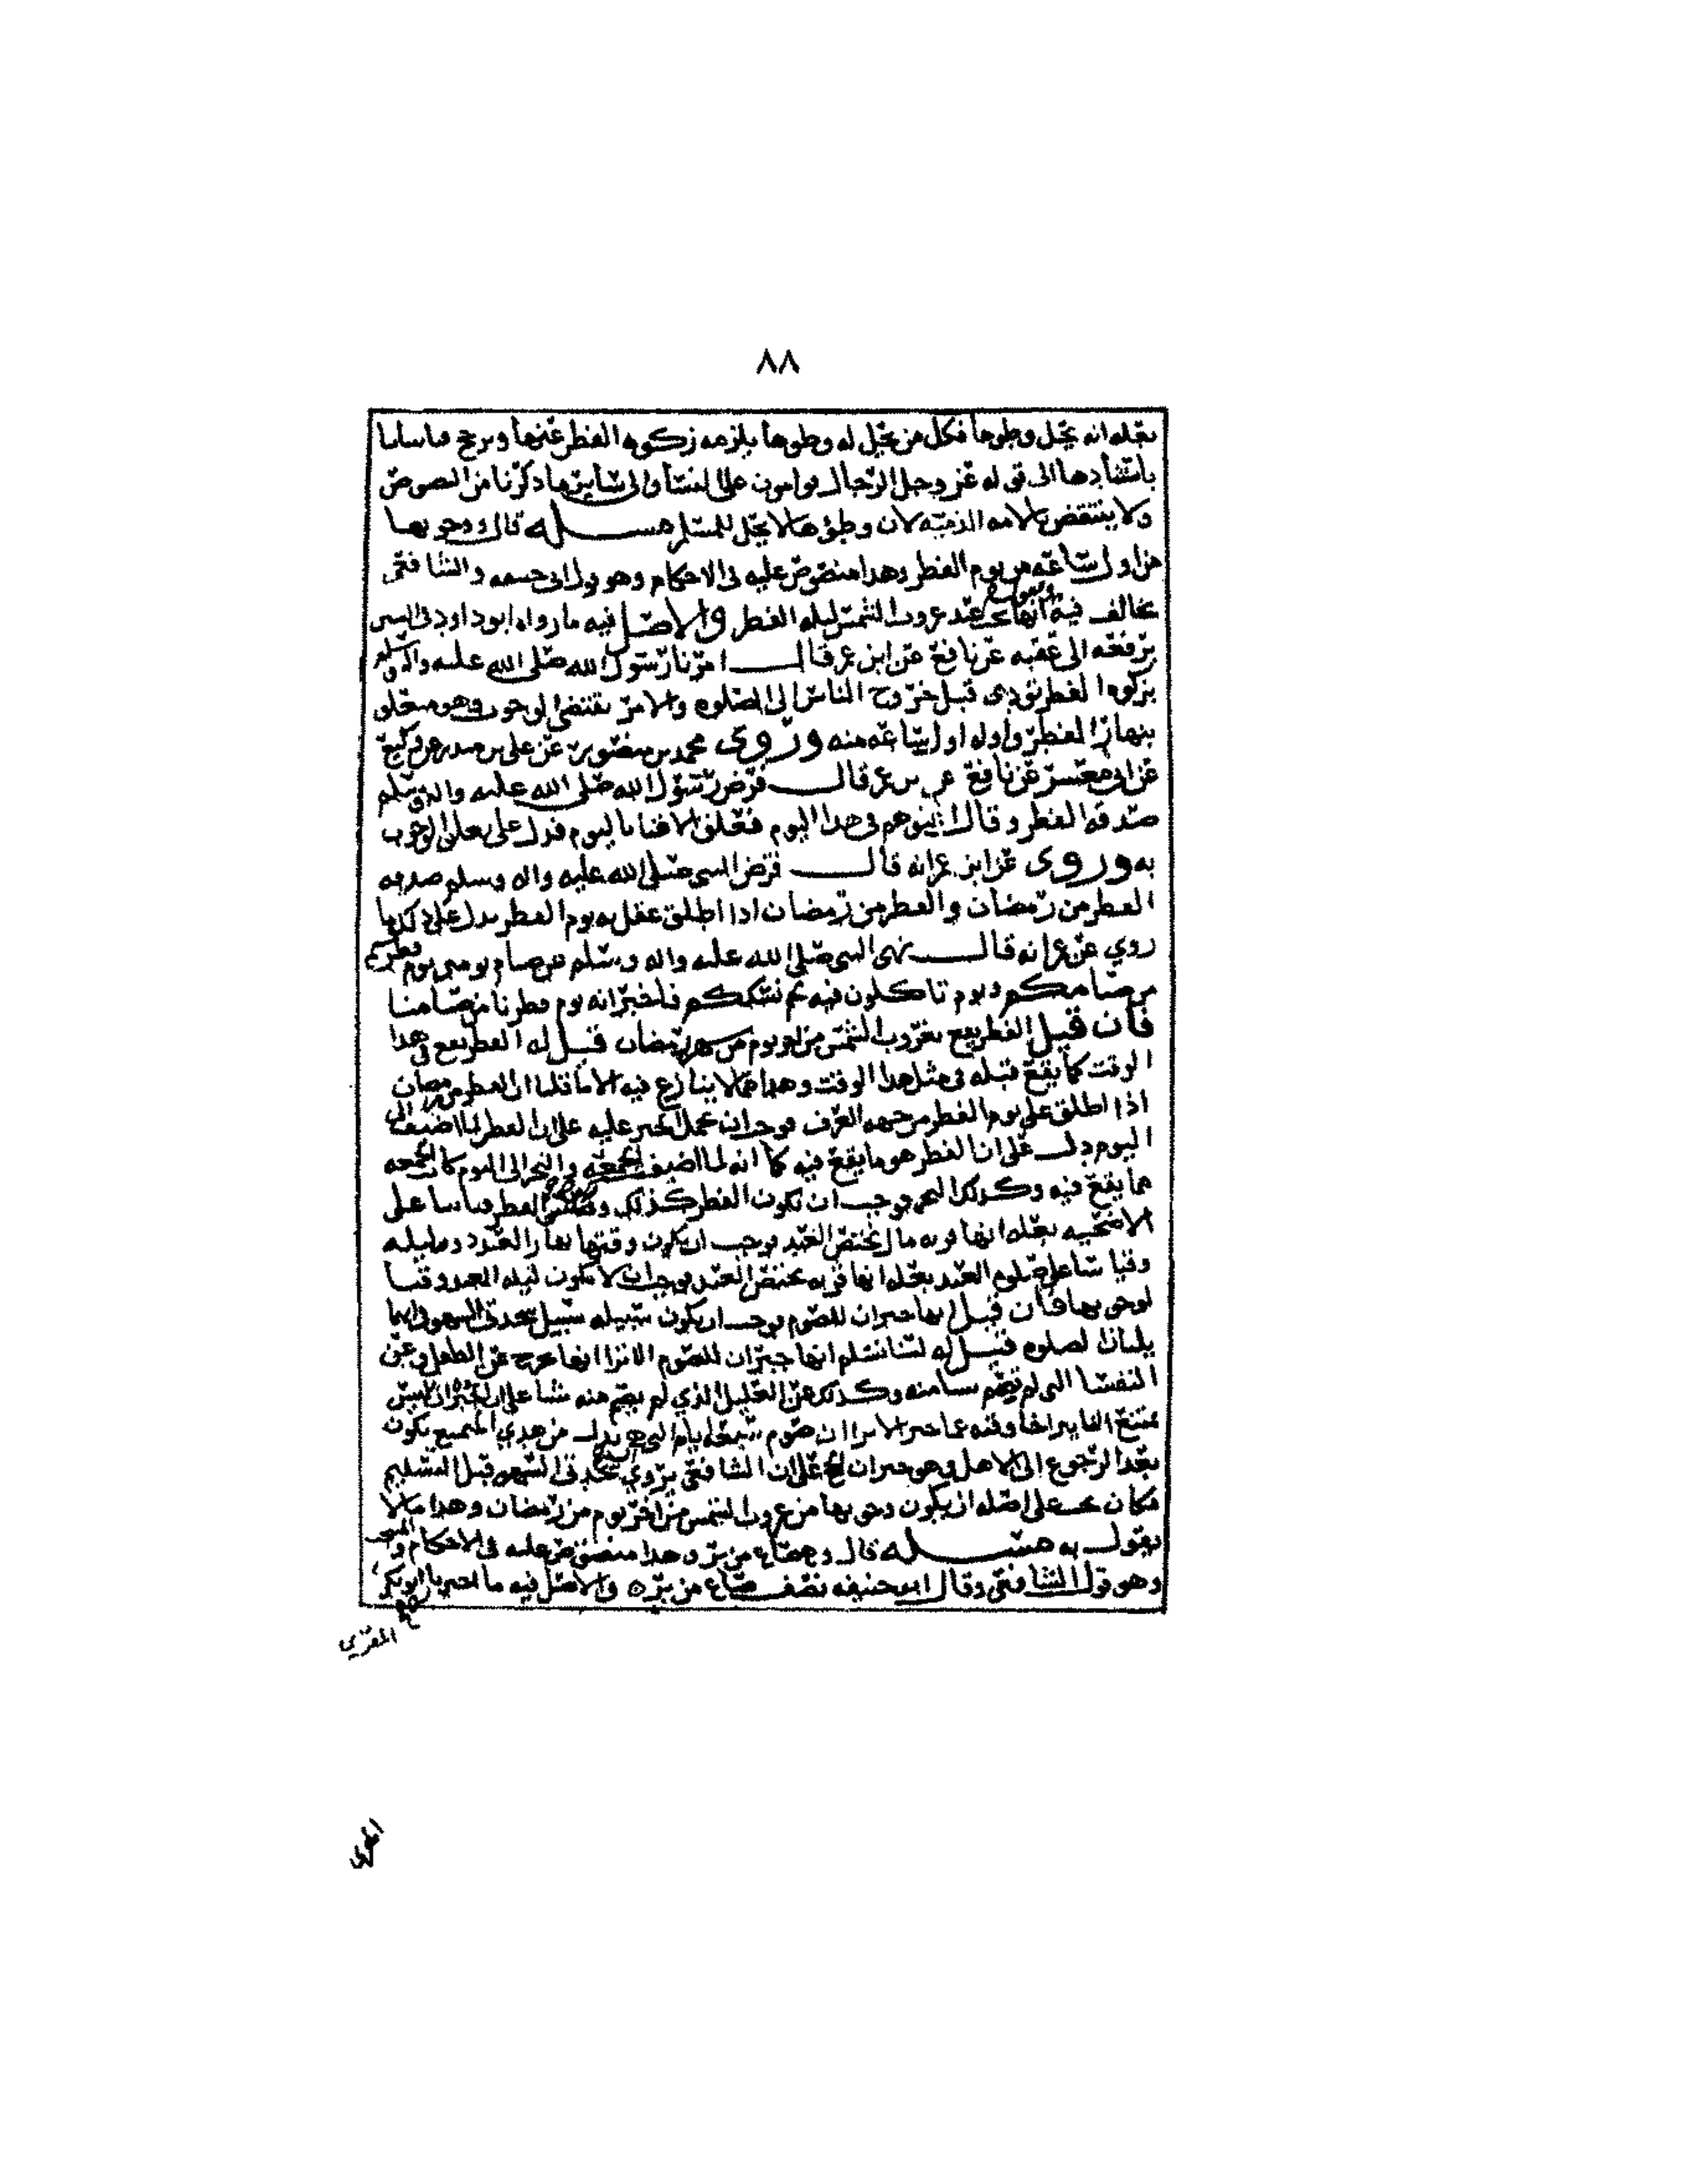 ٨٨
بعله انه يحل وطوها فكل من يحل له وطوها يلزمه زكوه الفطر عنها ويرجح قياسنا
باستنادها الى قوله عز وجل الرجال قوامون على النسا والى ساير ما ذكرنا من النصوص
ولا ينتقض بالامه الذميه لان وطؤها لا يحل للمسلم مســـله قال ووجوبها
من اول ساعه من يوم الفطر وهدا منصوص عليه في الاحكام وهو قول ابي حنيفه والشافعي
يخالف فيه ويقول انها تجب عند غروب الشمس ليله الفطر والاصل فيه ما رواه ابو داود في السنن
يرفعه الى عقبه عن نافع عن ابن عمر قال امرنا رسول الله صلى الله عليه واله وسلم
بزكوه الفطر تودى قبل خروج الناس الى الصلوه والامر يقتضي الوجوب وهو متعلق
بنهار الفطر واوله اول ساعه منه وروى محمد بن منصور عن علي بن منذر عن وكيع
عن ابي معشر عن نافع عن بن عمر قال فرض رسول الله صلى الله عليه واله وسلم
صدقه الفطر وقال اغنوهم في هدا اليوم فعلق الاغنا باليوم فدل على تعلق الوجوب
به وروى عن ابن عمر انه قال فرض النبي صلى الله عليه واله وسلم صدقه
الفطر من رمضان والفطر من رمضان ادا اطلق عقل به يوم الفطر يدل على ذلك ما
روي عن عمر انه قال نهى النبي صلى الله عليه واله وسلم عن صيام يومين يوم فطركم
من صيامكم ويوم تاكلون فيه لحم نسككم فاخبر انه يوم فطرنا من صيامنا
فان قيل الفطر يقع بغروب الشمس من اخر يوم من شهر رمضان قيل له الفطر يقع في هدا
الوقت كما يقع قبله في مثل هدا الوقت وهدا مما لا ينازع فيه الا ما قلنا ان الفطر من رمضان
اذا اطلق على يوم الفطر من جهه العرف فوجب ان يحمل الخبر عليه على ان الفطر لما اضيف الى
اليوم دل على ان الفطر هو ما يقع فيه كما انه لما اضيف الجمعه والنحر الى اليوم كانت الجمعه
مما يقع فيه وكذلك النحر فوجب ان تكون الفطر كذلك الفطر قياسا على
الاضحيه بعله انها قربه مال تختص العيد فوجب ان يكون وقتها نهار العيد دون ليله
وقياسا على صلوه العيد بعله انها قربه تختص العيد فوجب ان لا تكون ليله العيد وقتا
لوجوبها فان قيل انها جبران للصوم فوجب ان يكون سبيله سبيل سجدتي السهو في انهما
يليان الصلوه قيل له لسنا نسلم انها جبران للصوم الا ترا انها تخرج عن الطفل وعن
النفسا التي لم تصم شيا منه وكذلك عن العليل الذي لم يصم منه شيا على ان الجبران ليس
يمتنع وقته عما جبر الا ترا ان صوم سبعه ايام التي هي بدل من هدي المتمتع يكون
بعد الرجوع الى الاهل وهو جبران على ان الشافعي يروي سجدتي السهو قبل التسليم
فكان يجب على اصله ان يكون وجوبها من غروب الشمس من اخر يوم من رمضان وهدا ما لا
يقول به مســـله قال وهي صاع من بر وهدا منصوص عليه في الاحكام والمنتخب
وهو قول الشافعي وقال ابو حنيفه نصف صاع من بر ه والاصل فيه ما اخبرنا ابو بكر
المقري